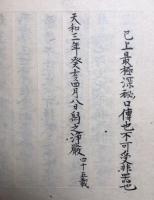 已上最極深秘口傳也不可授非器也
天和三年癸亥四月八日鈔之淨嚴四十五歲